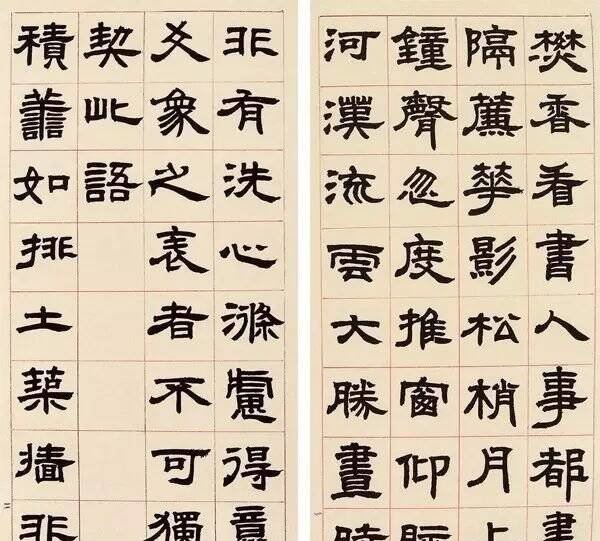 焚香看書人事都
隔薕華影松梢月上
鐘聲忽度推窗仰
河漢流雲大勝晝時
非有洗心滌慮得意
爻象之表者不可獨
契此語
積善如排土築牆非